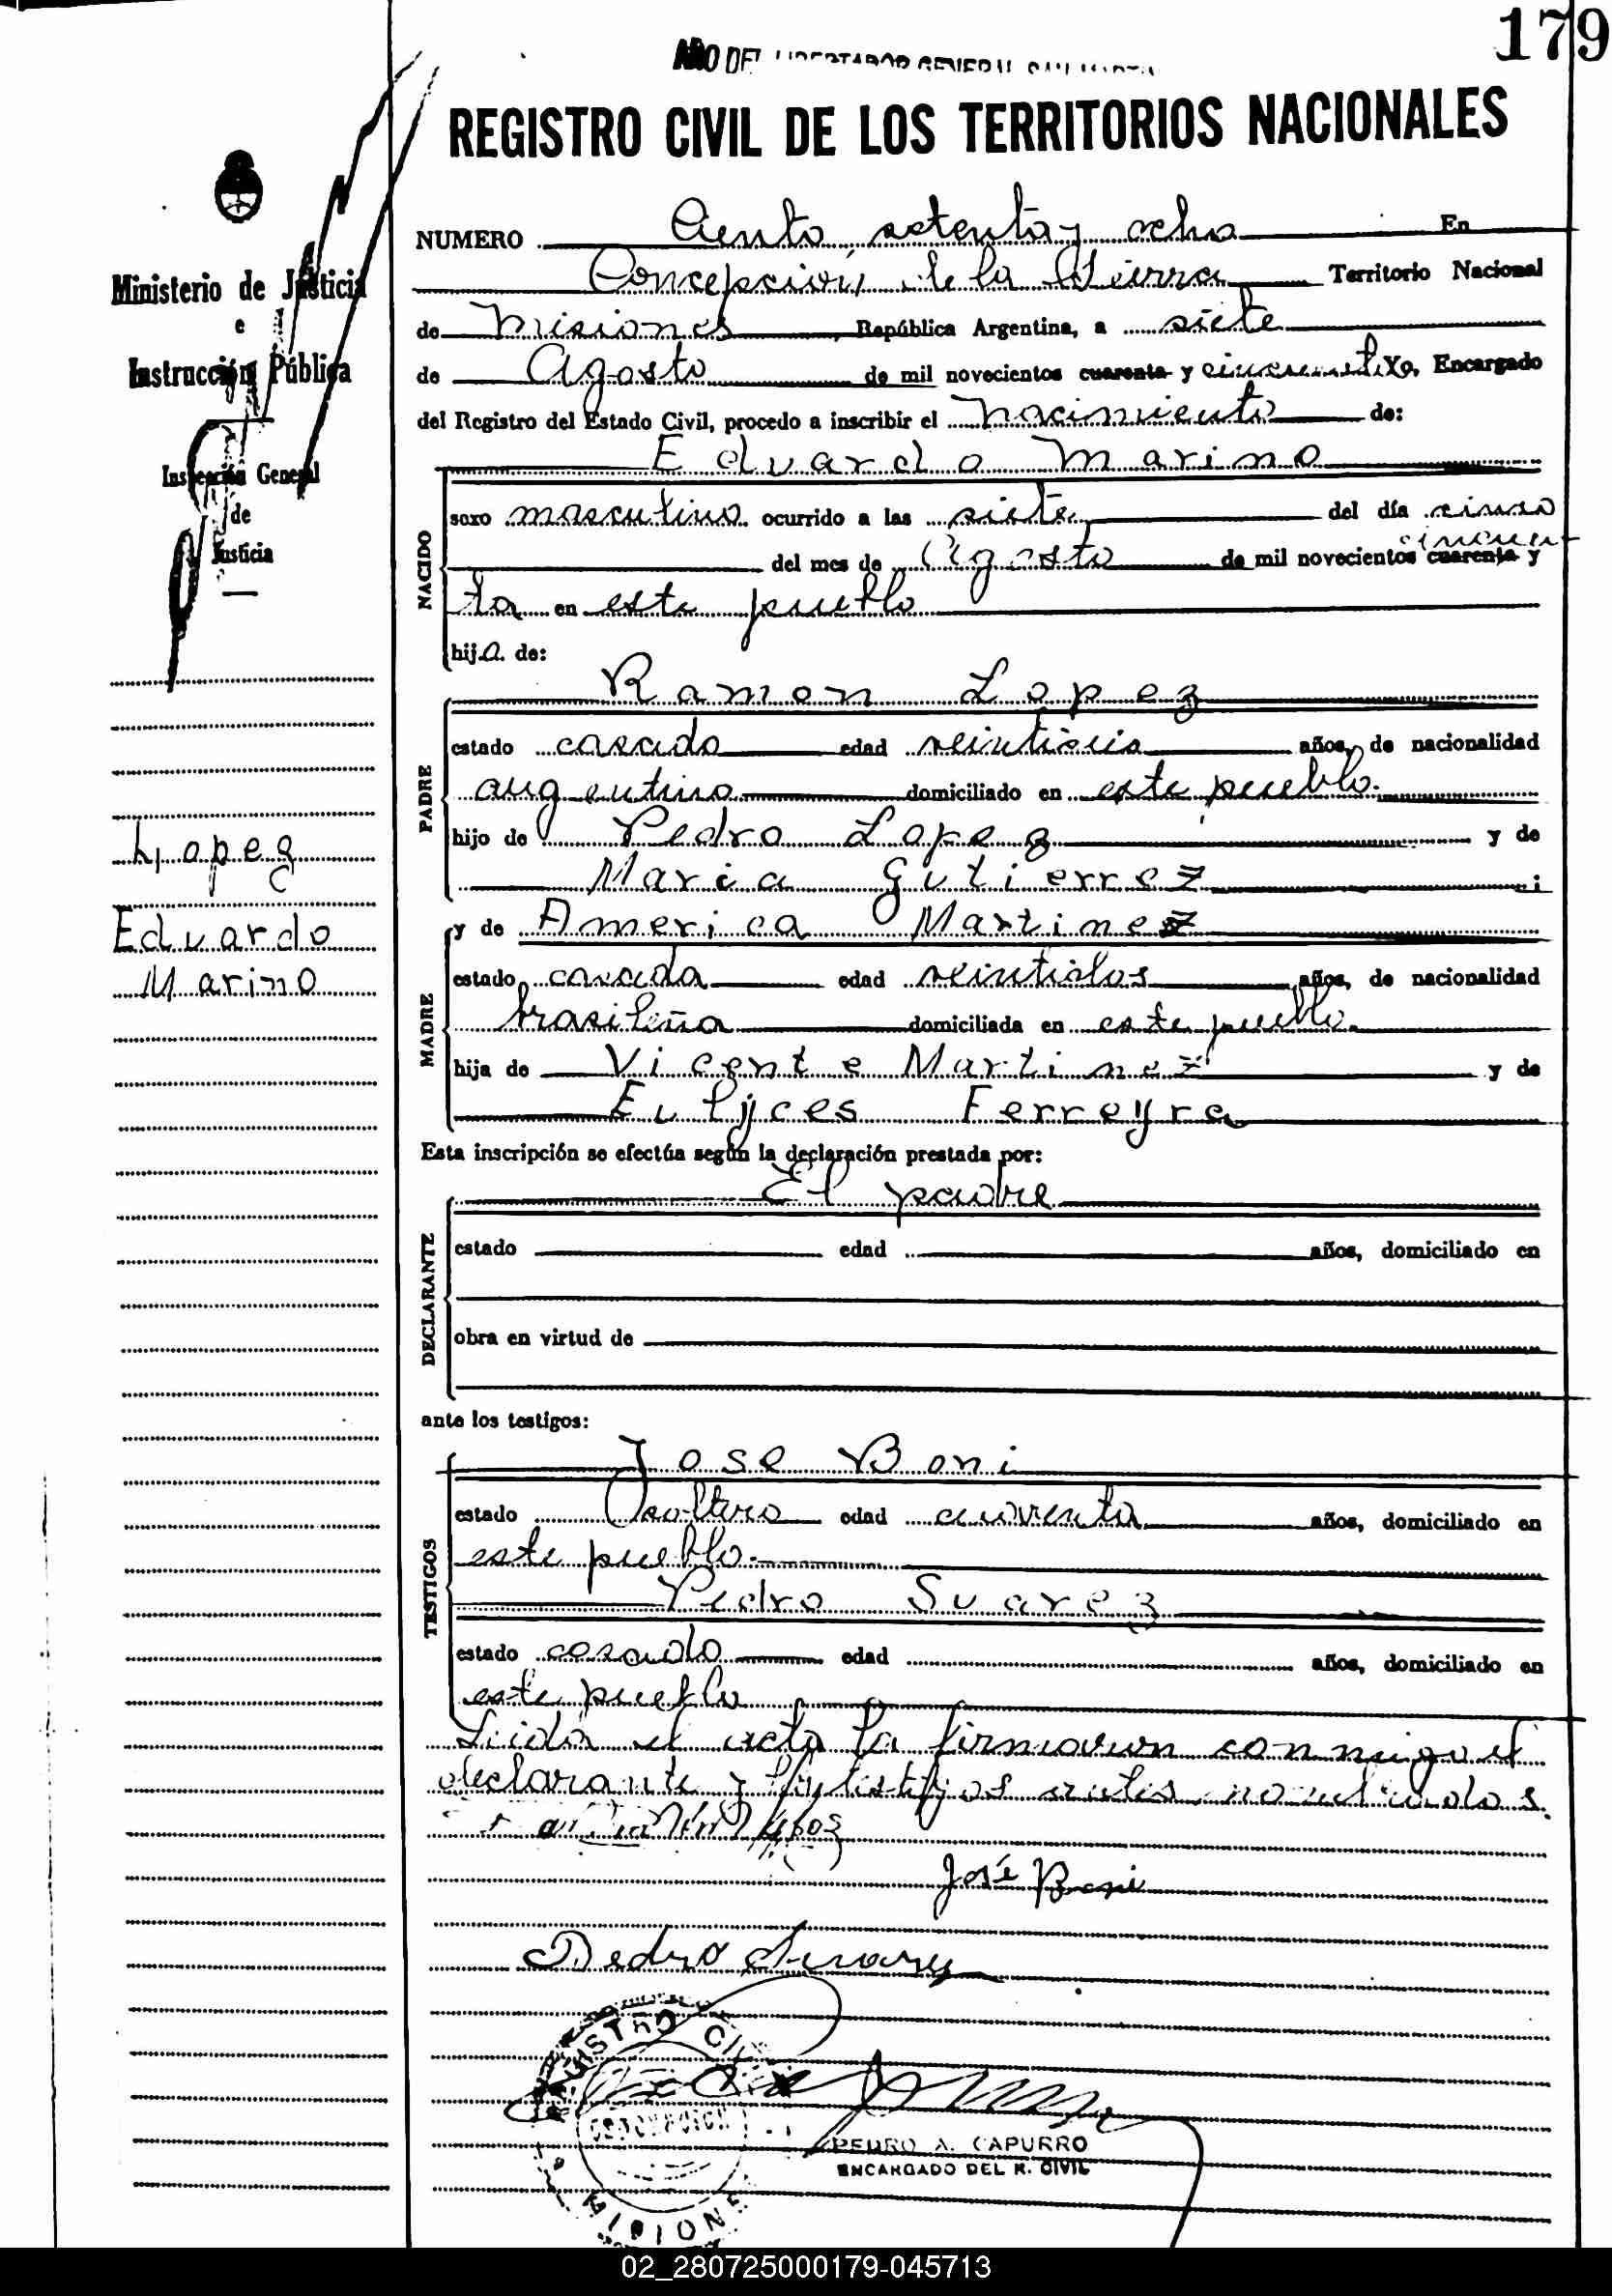 179
AÑO DEL LIBERTADOR GENERAL SAN MARTIN
REGISTRO CIVIL DE LOS TERRITORIOS NACIONALES
Ministerio de Justicia
e
Instrucción Pública
Inspección General
de
Justicia
Lopez
Eduardo
Marino
NUMERO Ciento setenta y ocho En
Concepción de la Sierra Territorio Nacional
de Misiones, República Argentina, a siete
de Agosto de mil novecientos cuarenta y cincuenta Yo, Encargado
del Registro del Estado Civil, procedo a inscribir el nacimiento de:
NACIDO
Eduardo Marino
sexo masculino ocurrido a las siete del día cinco
del mes de Agosto de mil novecientos cuarenta y cincuen
ta en este pueblo
hijo de:
PADRE
Ramon Lopez
estado casado edad veintiseis años, de nacionalidad
argentino domiciliado en este pueblo.
hijo de Pedro Lopez y de
Maria Gutierrez;
MADRE
y de America Martinez
estado casada edad veintidos años, de nacionalidad
brasileña domiciliada en este pueblo.
hija de Vicente Martinez y de
Eulyces Ferreyra
Esta inscripción se efectúa según la declaración prestada por:
DECLARANTE
El padre
estado edad años, domiciliado en
obra en virtud de
ante los testigos:
TESTIGOS
Jose Boni
estado soltero edad cuarenta años, domiciliado en
este pueblo.
Pedro Suarez
estado casado edad años, domiciliado en
este pueblo
Leida el acta la firmaron conmigo el
declarante y los testigos antes nombrados.
José Boni
Pedro Suarez
REGISTRO CIVIL
CONCEPCION
MISIONES
PEDRO A. CAPURRO
ENCARGADO DEL R. CIVIL
02_280725000179-045713